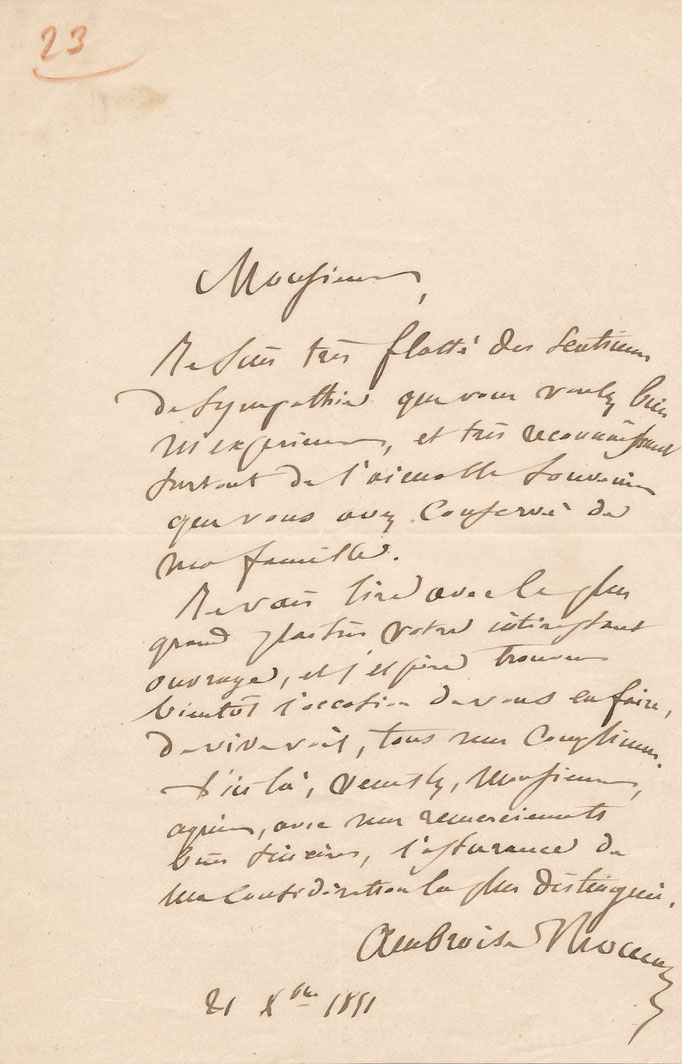 23
Monsieur,
Je suis très flatté des sentimens
de sympathie que vous voulez bien
m'exprimer, et très reconnaissant
surtout de l'aimable souvenir
que vous avez conservé de
ma famille.
Je vais lire avec le plus
grand plaisir votre intéressant
ouvrage, et j'espère trouver
bientôt l'occasion de vous en faire,
de vive voix, tous mes complimens.
D'ici là, veuillez, Monsieur,
agréer, avec mes remerciements
bien sincères, l'assurance de
ma considération la plus distinguée.
Ambroise Thomas
21 Xbre